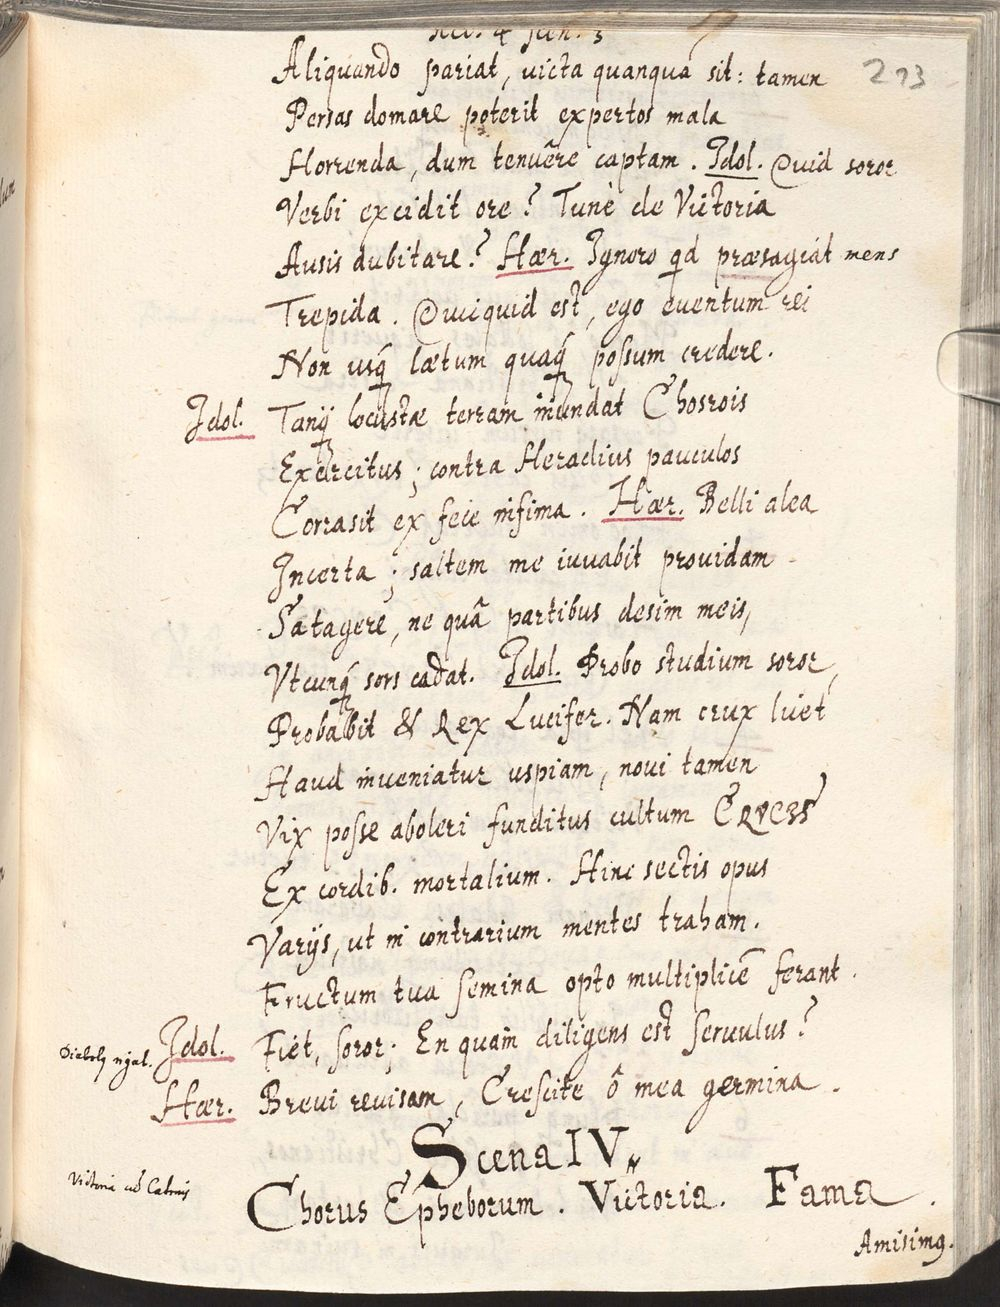 Act. 4 scen. 3
273
Aliquando pariat, victa quanquã sit: tamen
Persas domare poterit expertos mala
Horrenda, dum tenuêre captam. Idol. Quid soror
Verbi excidit ore? Tunè de Victoria
Ausis dubitare? Hær. Ignoro qd præsagiat mens
Trepida. Quicquid est, ego eventum rei
Non usq́ lætum quaq́ possum credere.
Idol. Tanq́ locustæ terram inundat Chosrois
Exercitus; contra Heraclius pauculos
Corrasit ex fece infima. Hær. Belli alea
Incerta; saltem me iuvabit providam
Satagere, ne quâ partibus desim meis,
Vtcunq́ sors cadat. Idol. Probo studium soror,
Probabit & Rex Lucifer. Nam crux licet
Haud inveniatur uspiam, novi tamen
Vix posse aboleri funditus cultum CRVCIS
Ex cordib. mortalium. Hinc sectis opus
Varijs, ut in contrarium mentes traham.
Fructum tua semina opto multiplicẽ ferant.
Idol. Fiet, soror; En quàm diligens est servulus?
Hær. Brevi revisam, Crescite ô mea germina.
Scena IV
Victoria
Chorus Epheborum. Victoria. Fama.
Amisimq.